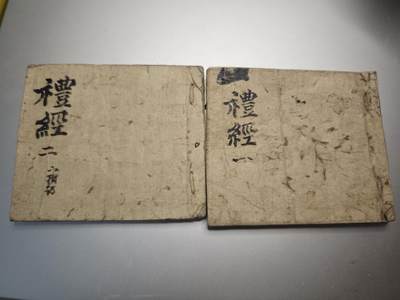 禮經一
禮經二